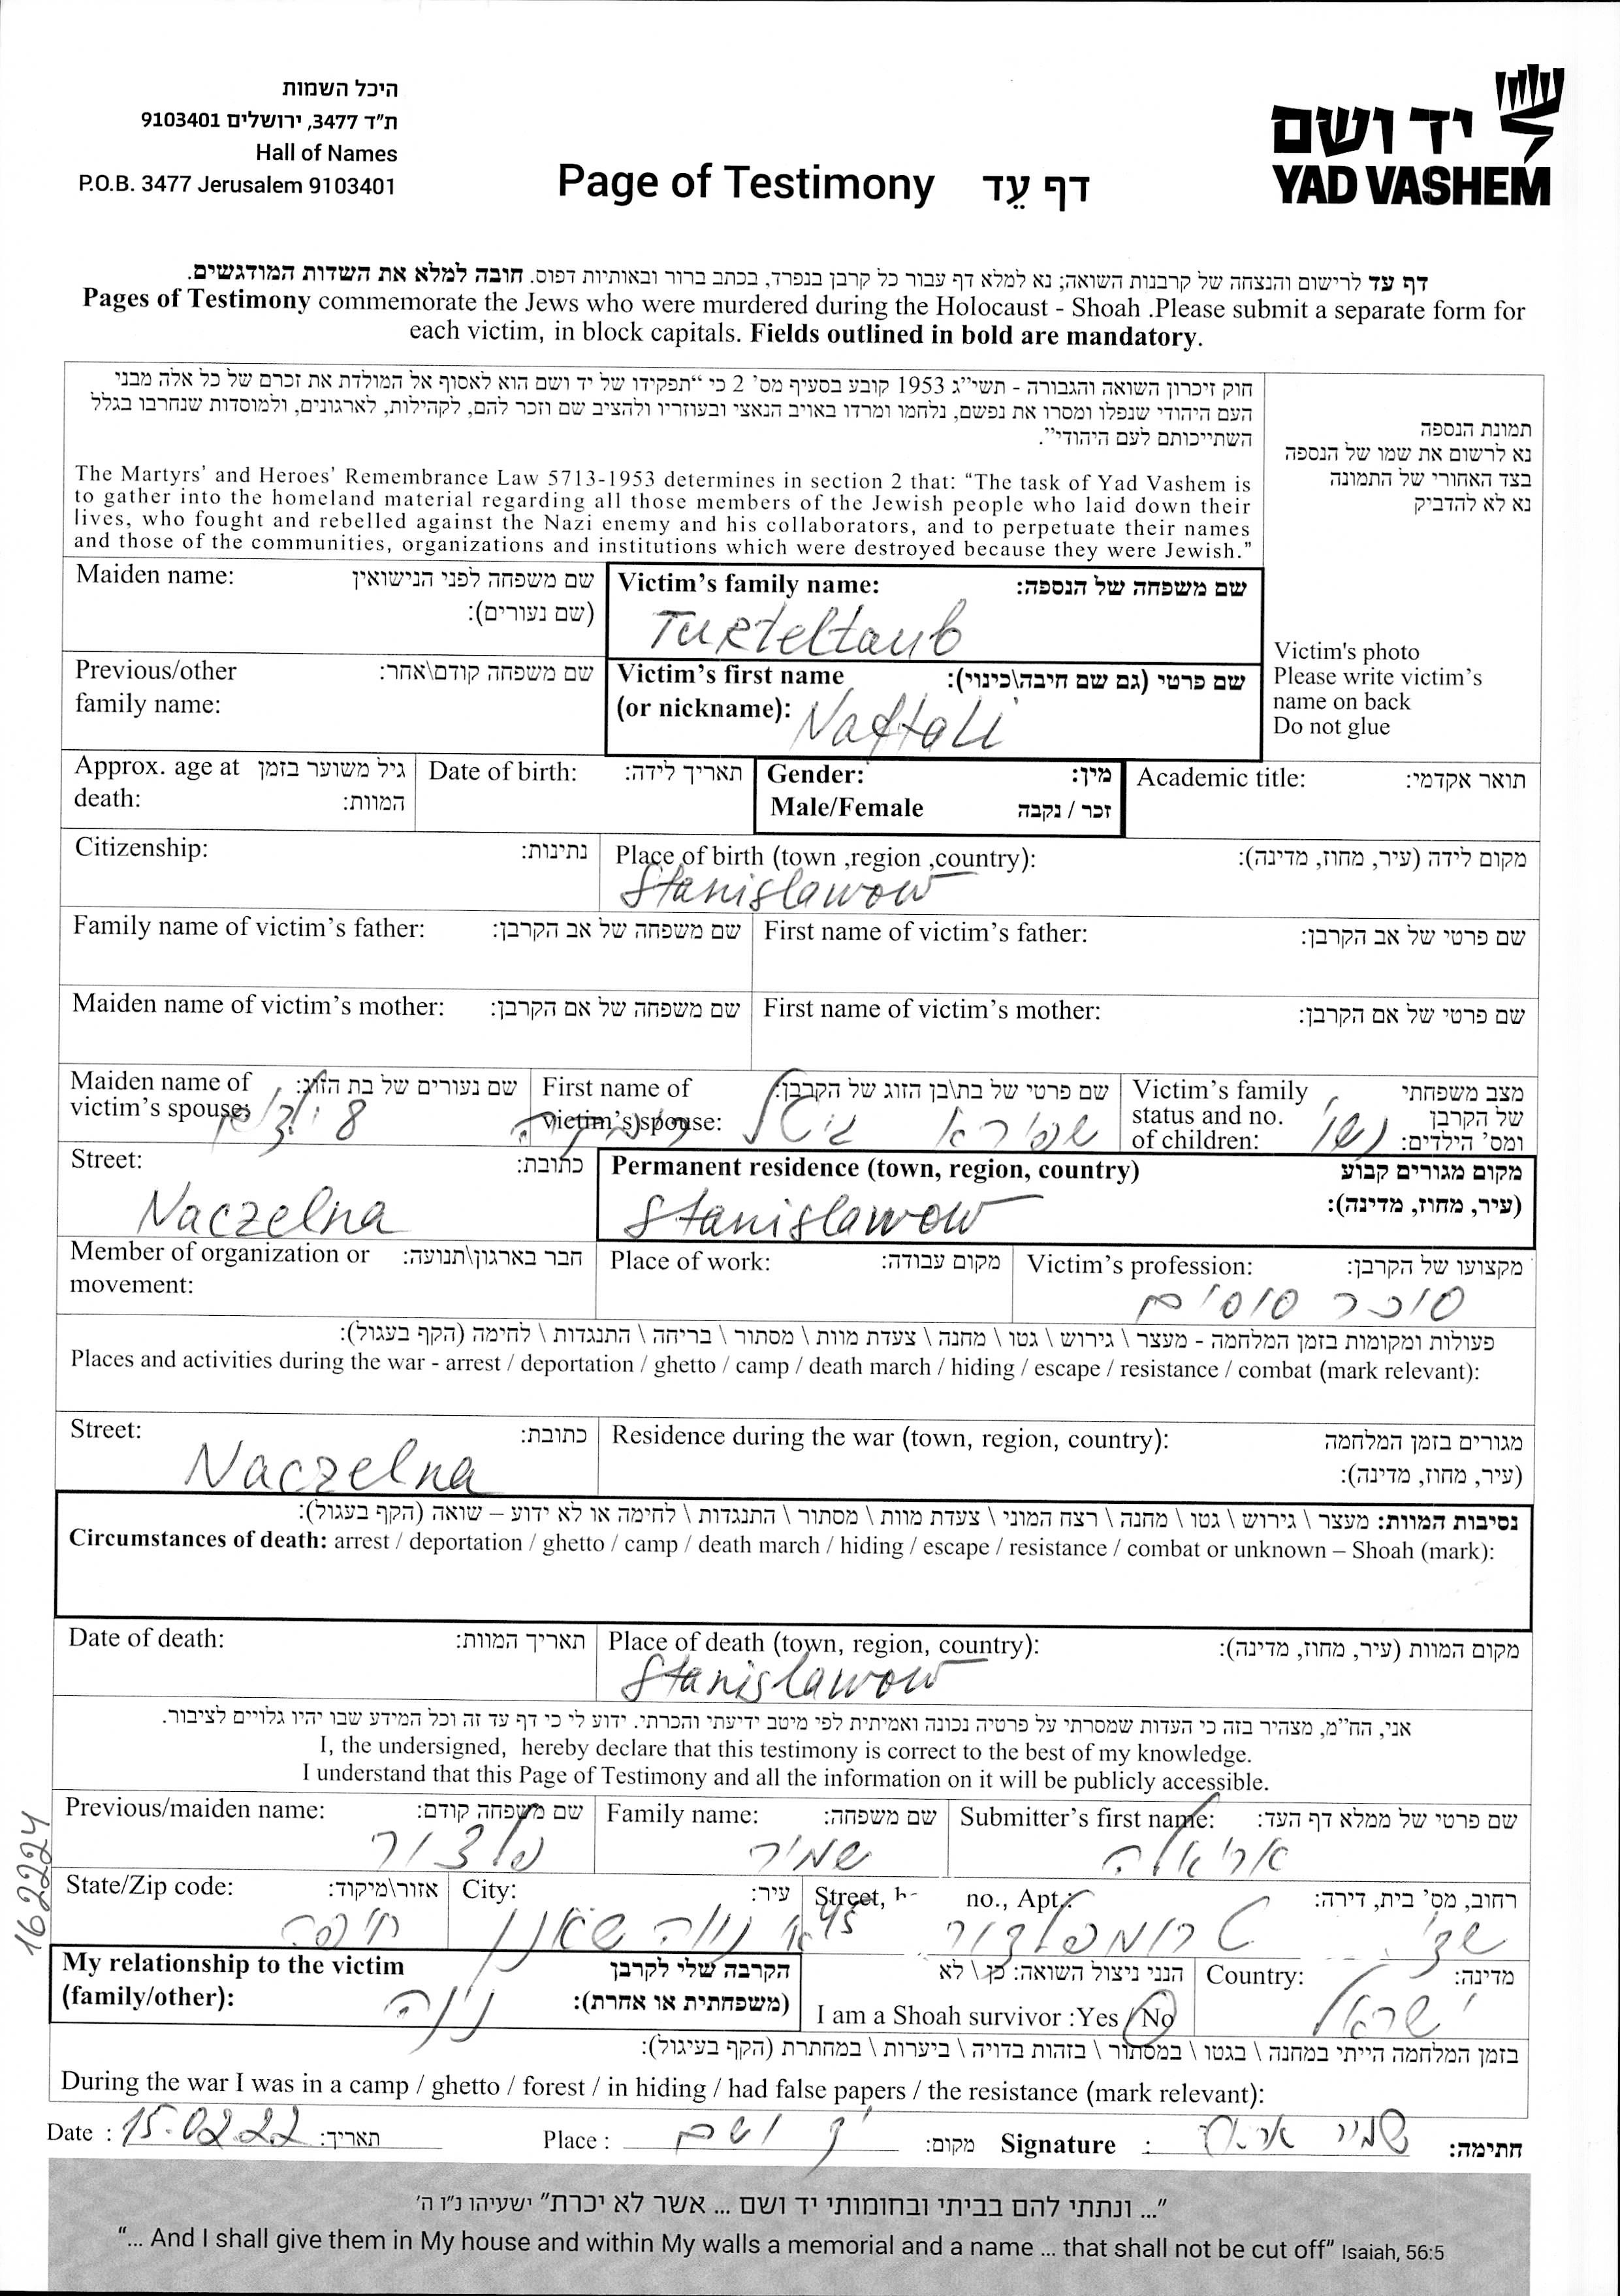 היכל השמות
ת"ד 3477, ירושלים 9103401
Hall of Names
P.O.B. 3477 Jerusalem 9103401
יד ושם
YAD VASHEM
Page of Testimony דף עֵד
דף עד לרישום והנצחה של קרבנות השואה; נא למלא דף עבור כל קרבן בנפרד, בכתב ברור ובאותיות דפוס. חובה למלא את השדות המודגשים.
Pages of Testimony commemorate the Jews who were murdered during the Holocaust - Shoah .Please submit a separate form for
each victim, in block capitals. Fields outlined in bold are mandatory.
חוק זיכרון השואה והגבורה - תשי"ג 1953 קובע בסעיף מס' 2 כי "תפקידו של יד ושם הוא לאסוף אל המולדת את זכרם של כל אלה מבני
העם היהודי שנפלו ומסרו את נפשם, נלחמו ומרדו באויב הנאצי ובעוזריו ולהציב שם וזכר להם, לקהילות, לארגונים, ולמוסדות שנחרבו בגלל
השתייכותם לעם היהודי".
The Martyrs' and Heroes' Remembrance Law 5713-1953 determines in section 2 that: "The task of Yad Vashem is
to gather into the homeland material regarding all those members of the Jewish people who laid down their
lives, who fought and rebelled against the Nazi enemy and his collaborators, and to perpetuate their names
and those of the communities, organizations and institutions which were destroyed because they were Jewish."
תמונת הנספה
נא לרשום את שמו של הנספה
בצד האחורי של התמונה
נא לא להדביק
Victim's photo
Please write victim's
name on back
Do not glue
Maiden name: שם משפחה לפני הנישואין
(שם נעורים):
Victim's family name: שם משפחה של הנספה:
Turteltaub
Previous/other שם משפחה קודם\אחר:
family name:
Victim's first name שם פרטי (גם שם חיבה\כינוי):
(or nickname): Naftali
Approx. age at גיל משוער בזמן
death: המוות:
Date of birth: תאריך לידה:
Gender: מין:
Male/Female זכר / נקבה
Academic title: תואר אקדמי:
Citizenship: נתינות:
Place of birth (town ,region ,country): מקום לידה (עיר, מחוז, מדינה):
Stanislawow
Family name of victim's father: שם משפחה של אב הקרבן:
First name of victim's father: שם פרטי של אב הקרבן:
Maiden name of victim's mother: שם משפחה של אם הקרבן:
First name of victim's mother: שם פרטי של אם הקרבן:
Maiden name of שם נעורים של בת הזוג:
victim's spouse:
First name of שם פרטי של בת\בן הזוג של הקרבן:
victim's spouse: שפירא גיטל
Victim's family מצב משפחתי
status and no. של הקרבן
of children: ומס' הילדים: נשוי
Street: כתובת:
Naczelna
Permanent residence (town, region, country) מקום מגורים קבוע
(עיר, מחוז, מדינה):
Stanislawow
Member of organization or חבר בארגון\תנועה:
movement:
Place of work: מקום עבודה:
Victim's profession: מקצועו של הקרבן:
סוכר סוסים
פעולות ומקומות בזמן המלחמה - מעצר \ גירוש \ גטו \ מחנה \ צעדת מוות \ מסתור \ בריחה \ התנגדות \ לחימה (הקף בעגול):
Places and activities during the war - arrest / deportation / ghetto / camp / death march / hiding / escape / resistance / combat (mark relevant):
Street: כתובת:
Naczelna
Residence during the war (town, region, country): מגורים בזמן המלחמה
(עיר, מחוז, מדינה):
נסיבות המוות: מעצר \ גירוש \ גטו \ מחנה \ רצח המוני \ צעדת מוות \ מסתור \ התנגדות \ לחימה או לא ידוע – שואה (הקף בעגול):
Circumstances of death: arrest / deportation / ghetto / camp / death march / hiding / escape / resistance / combat or unknown – Shoah (mark):
Date of death: תאריך המוות:
Place of death (town, region, country): מקום המוות (עיר, מחוז, מדינה):
Stanislawow
אני, הח"מ, מצהיר בזה כי העדות שמסרתי על פרטיה נכונה ואמיתית לפי מיטב ידיעתי והכרתי. ידוע לי כי דף עד זה וכל המידע שבו יהיו גלויים לציבור.
I, the undersigned, hereby declare that this testimony is correct to the best of my knowledge.
I understand that this Page of Testimony and all the information on it will be publicly accessible.
Previous/maiden name: שם משפחה קודם:
פלצור
Family name: שם משפחה:
שמיר
Submitter's first name: שם פרטי של ממלא דף העד:
אריאלה
State/Zip code: אזור\מיקוד:
חיפה
City: עיר:
נווה שאנן
Street, no., Apt.: רחוב, מס' בית, דירה:
שד' טרומפלדור 45
My relationship to the victim הקרבה שלי לקרבן
(family/other): (משפחתית או אחרת):
נינה
הנני ניצול השואה: כן \ לא
I am a Shoah survivor :Yes / No
Country: מדינה:
ישראל
בזמן המלחמה הייתי במחנה \ בגטו \ במסתור \ בזהות בדויה \ ביערות \ במחתרת (הקף בעיגול):
During the war I was in a camp / ghetto / forest / in hiding / had false papers / the resistance (mark relevant):
Date : 15.02.22 תאריך:
Place : יד ושם מקום:
Signature : שמיר חתימה:
162224
"... ונתתי להם בביתי ובחומותי יד ושם ... אשר לא יכרת" ישעיהו נ"ו ה'
"... And I shall give them in My house and within My walls a memorial and a name ... that shall not be cut off" Isaiah, 56:5